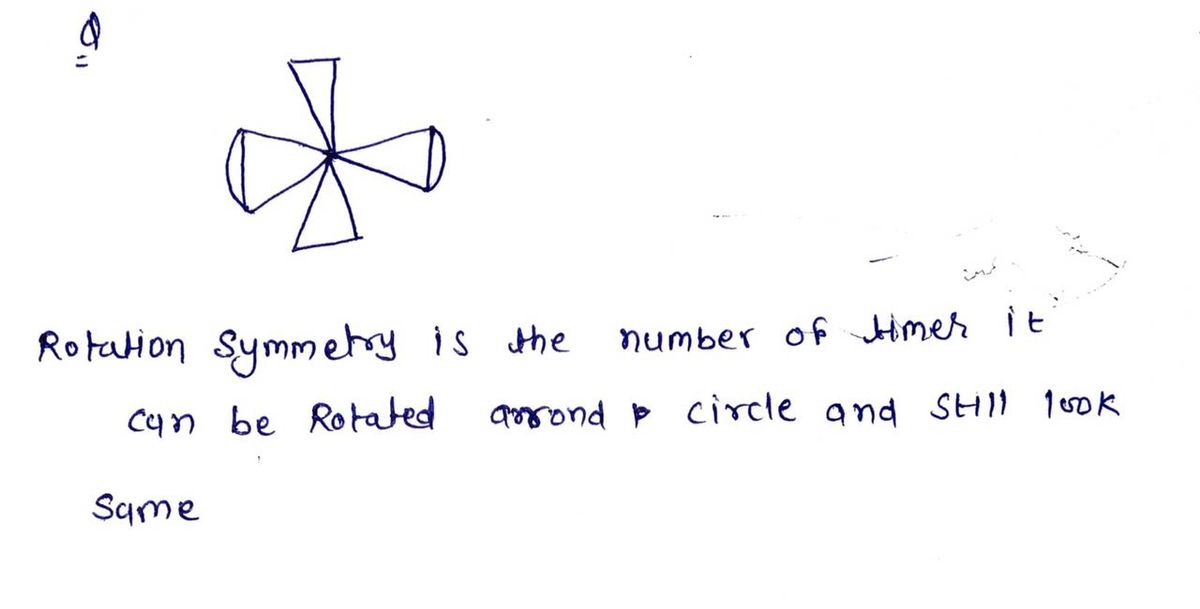 Q
Rotation Symmetry is the number of times it
can be Rotated arrond circle and still look
Same